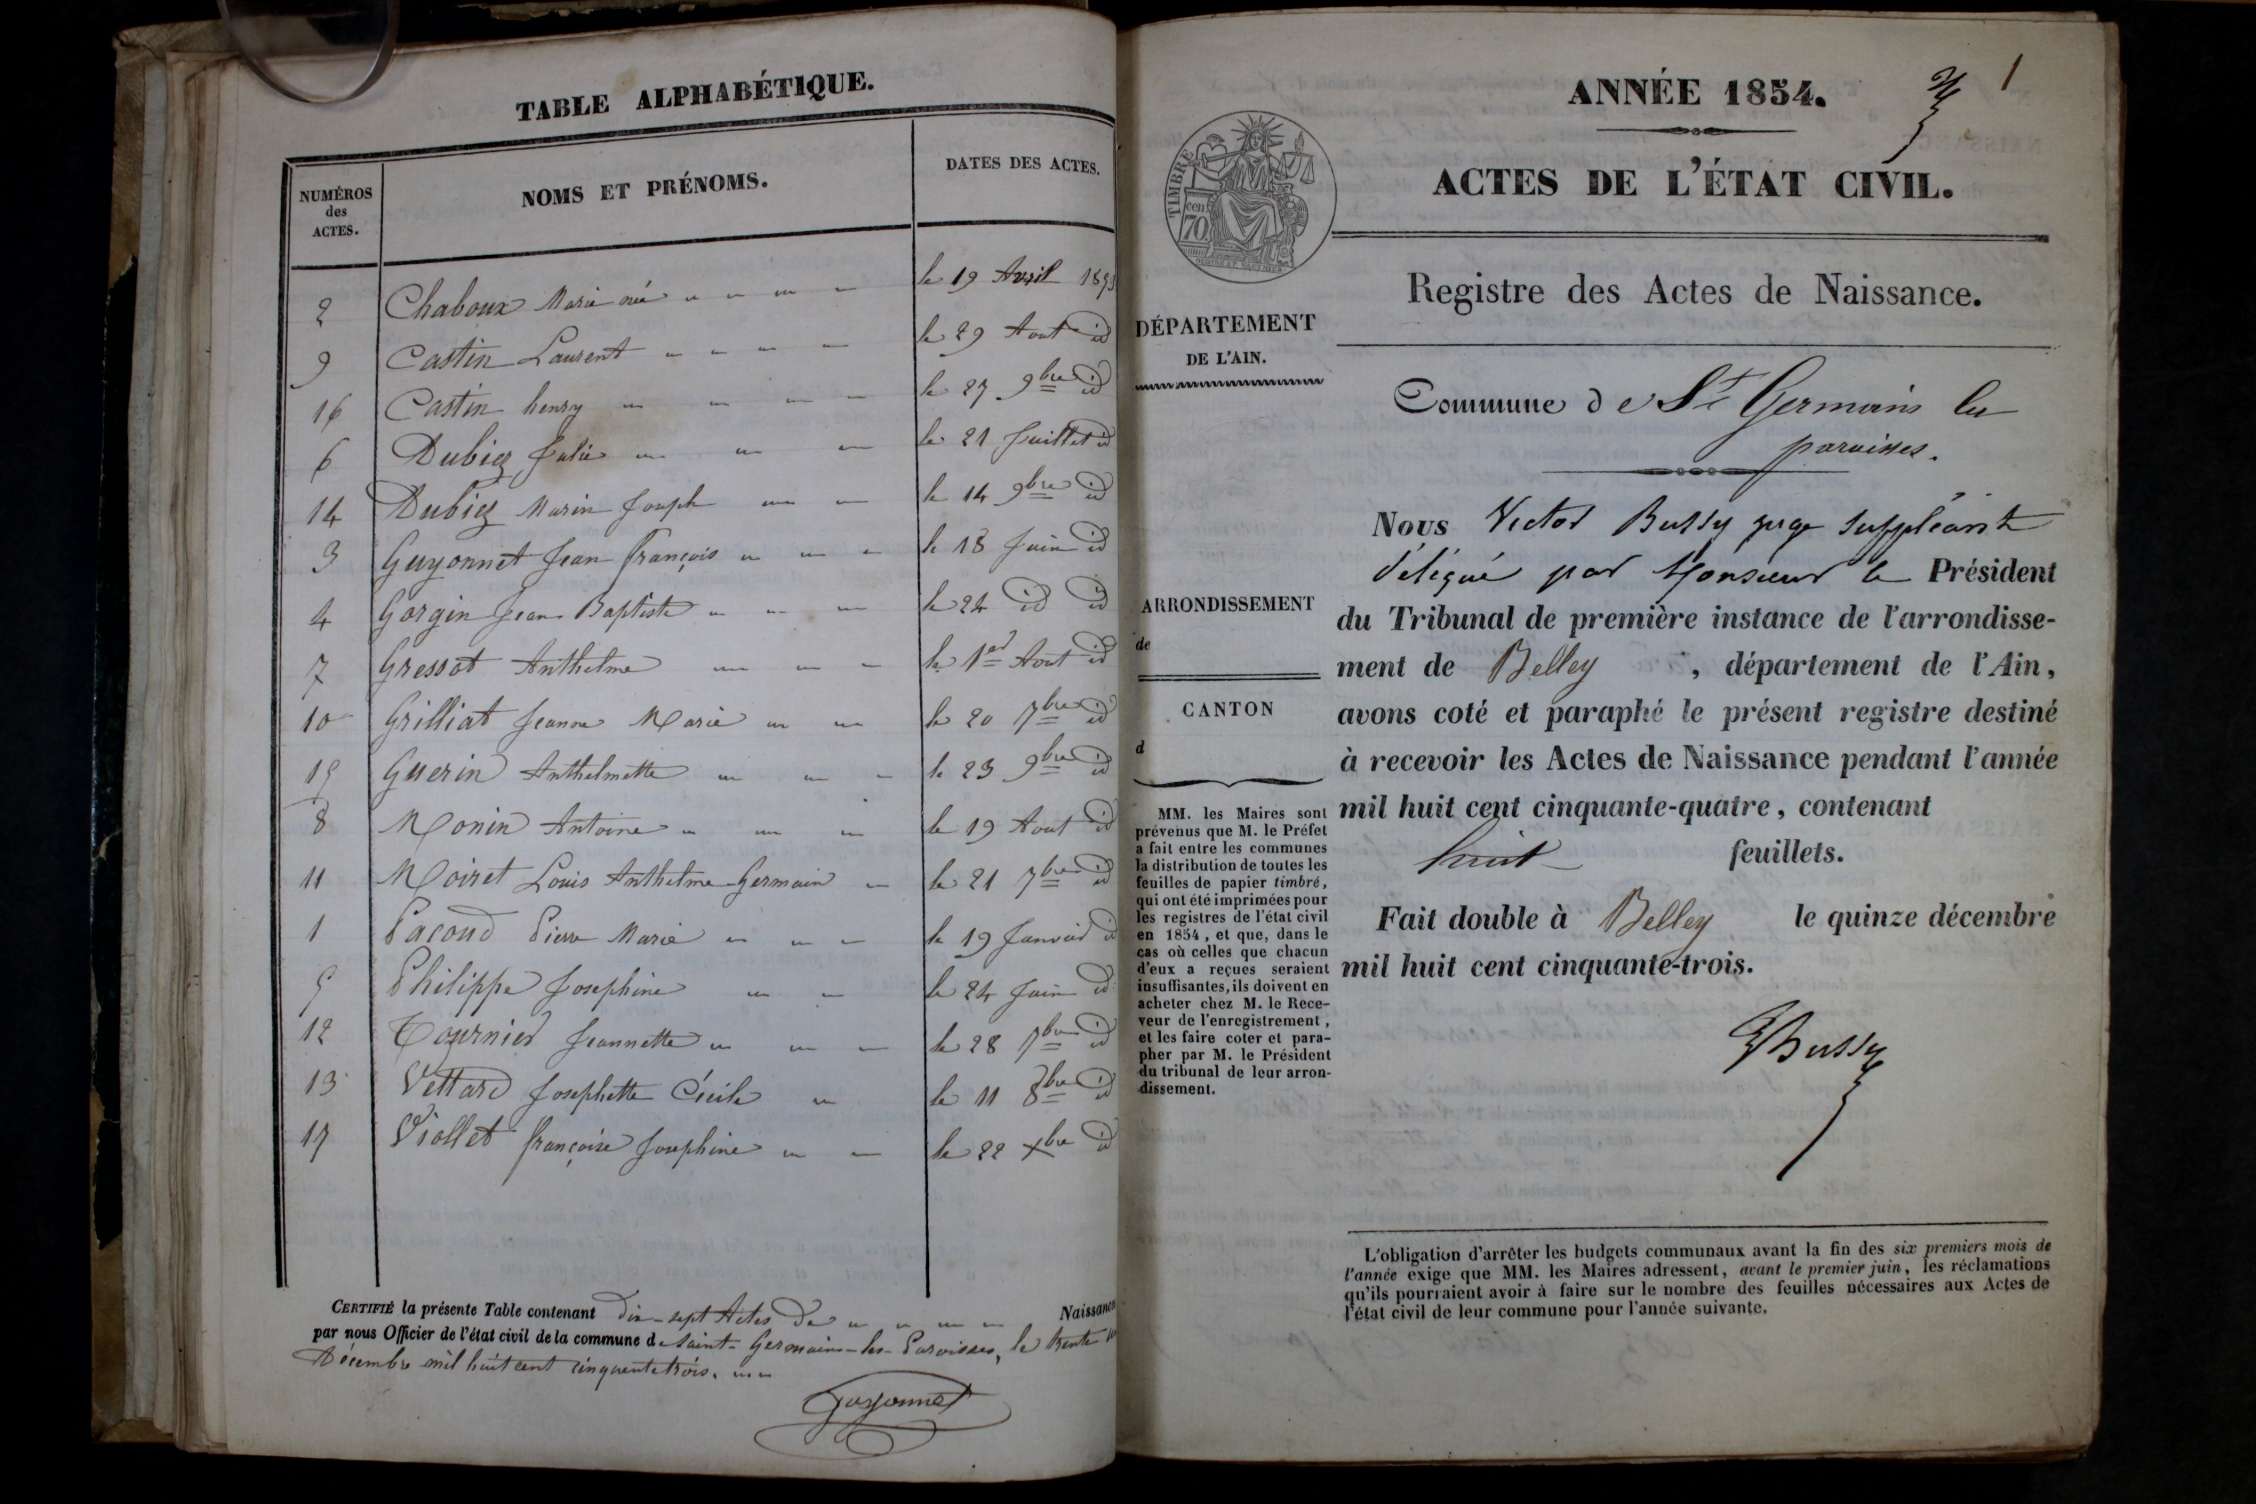 TABLE ALPHABÉTIQUE.
NUMÉROS des ACTES. NOMS ET PRÉNOMS. DATES DES ACTES.
2 Chaboux Marie née le 19 Avril 1853
9 Castin Laurent le 29 Aout id
16 Castin henry le 27 9bre id
6 Dubiez Julie le 21 Juillet id
14 Dubiez Marin Joseph le 14 9bre id
3 Guyonnet Jean François le 18 Juin id
4 Gorgin Jean Baptiste le 24 id id
7 Gressot Anthelme le 1er Aout id
10 Grilliat Jeanne Marie le 20 7bre id
15 Guerin Anthelmette le 23 9bre id
8 Monin Antoine le 19 Aout id
11 Moiret Louis Anthelme Germain le 21 7bre id
1 Pacoud Pierre Marie le 19 Janvier id
5 Philippe Josephine le 24 Juin id
12 Tournier Jeannette le 28 7bre id
13 Vettard Josephette Cécile le 11 8bre id
17 Viollet françoise Josephine le 22 Xbre id
CERTIFIÉ la présente Table contenant dix-sept Actes de Naissance
par nous Officier de l'état civil de la commune de Saint-Germain-les-Paroisses, le trente
Décembre mil huit cent cinquante trois.
Guyonnet
1
ANNÉE 1854.
ACTES DE L'ÉTAT CIVIL.
TIMBRE
cen
70
Registre des Actes de Naissance.
DÉPARTEMENT
DE L'AIN.
Commune de St Germain les
paroisses.
ARRONDISSEMENT
de
CANTON
d
MM. les Maires sont
prévenus que M. le Préfet
a fait entre les communes
la distribution de toutes les
feuilles de papier timbré,
qui ont été imprimées pour
les registres de l'état civil
en 1854, et que, dans le
cas où celles que chacun
d'eux a reçues seraient
insuffisantes, ils doivent en
acheter chez M. le Rece-
veur de l'enregistrement,
et les faire coter et para-
pher par M. le Président
du tribunal de leur arron-
dissement.
Nous Victor Bussy juge suppléant
délégué par Monsieur le Président
du Tribunal de première instance de l'arrondisse-
ment de Belley, département de l'Ain,
avons coté et paraphé le présent registre destiné
à recevoir les Actes de Naissance pendant l'année
mil huit cent cinquante-quatre, contenant
huit feuillets.
Fait double à Belley le quinze décembre
mil huit cent cinquante-trois.
VBussy
L'obligation d'arrêter les budgets communaux avant la fin des six premiers mois de
l'année exige que MM. les Maires adressent, avant le premier juin, les réclamations
qu'ils pourraient avoir à faire sur le nombre des feuilles nécessaires aux Actes de
l'état civil de leur commune pour l'année suivante.